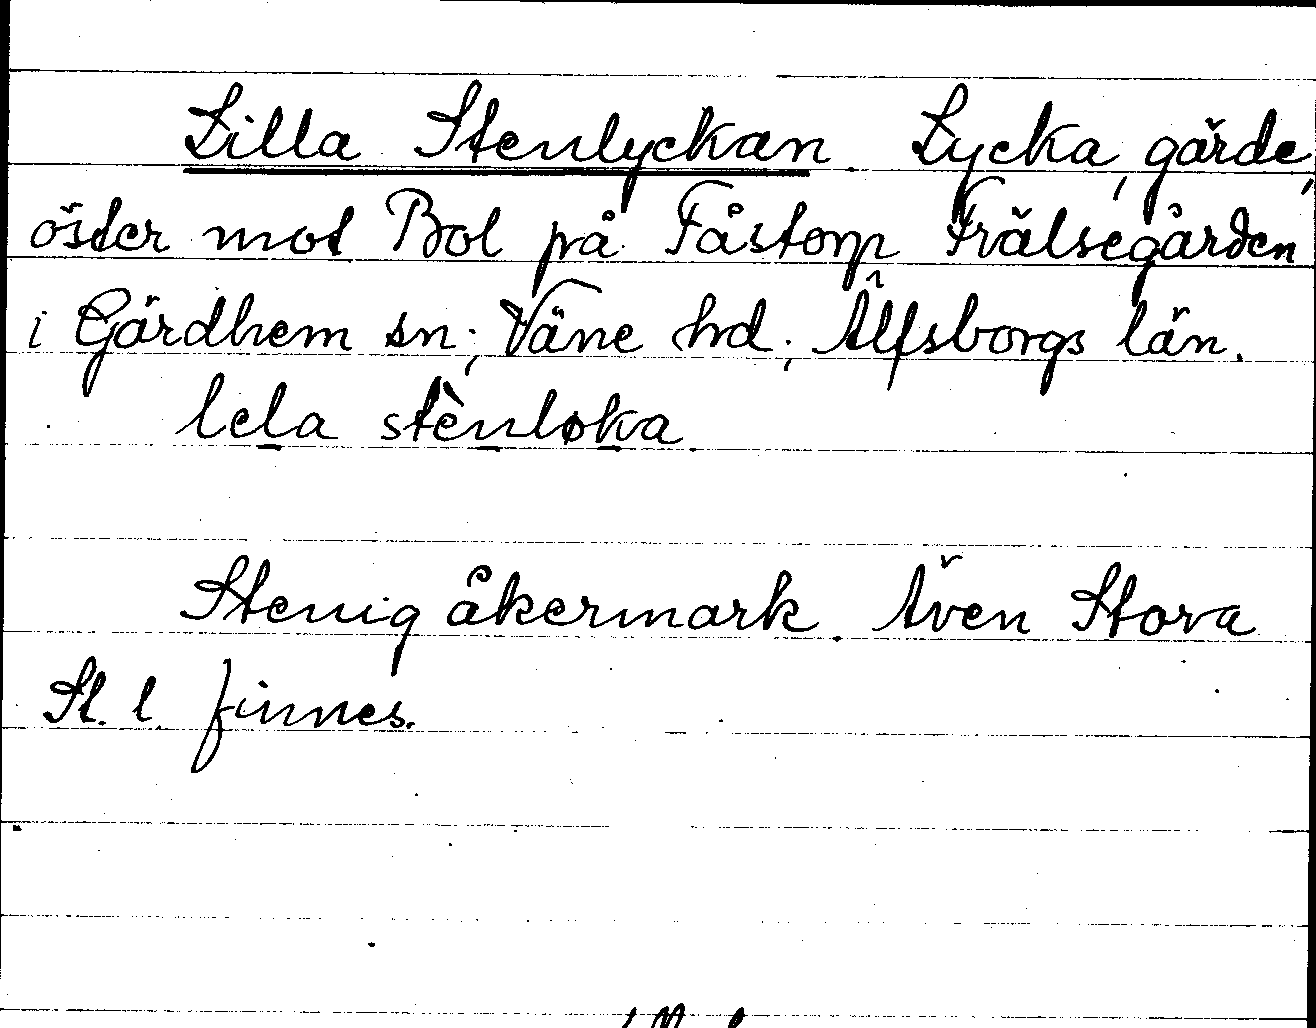 Lilla Stenlyckan. Lycka, gärde,
öster mot Bol på Fåstorp Frälsegården
i Gärdhem sn; Väne hd; Älfsborgs län.
lela stènløka
Stenig åkermark. Även Stora
St. l. finnes.